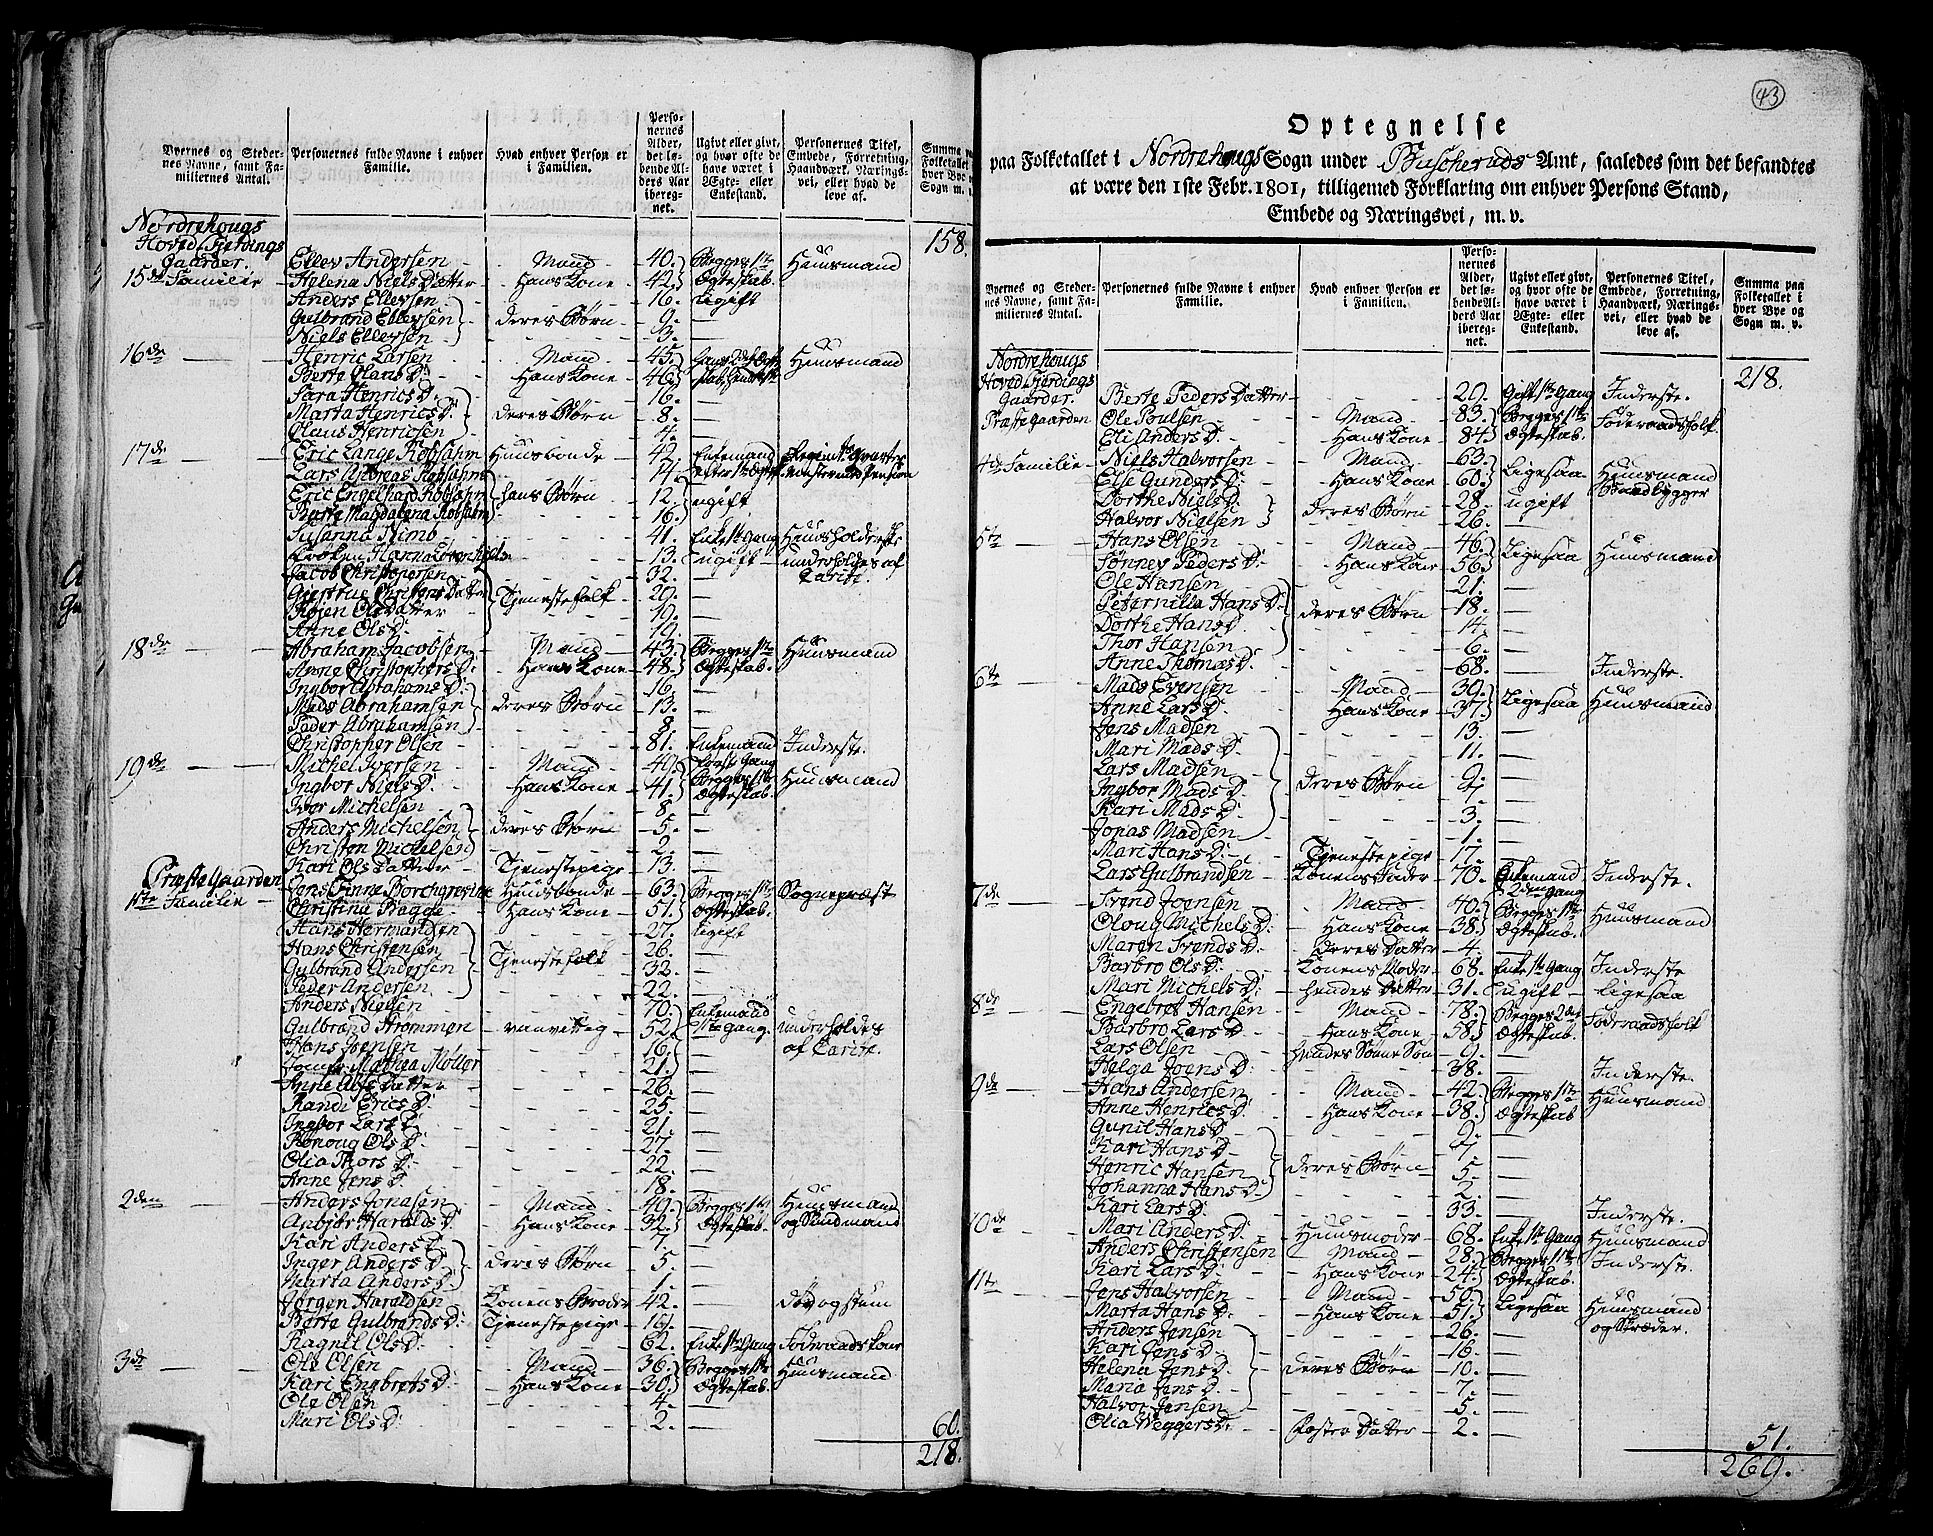 Byernes og Steder-
nes Navne, samt Fa-
miliernes Antal.
Personernes fulde Navne i enhver
Familie.
Hvad enhver Person er
i Familien.
Perso-
nernes
Alder,
det lø-
bende Al-
ders Aar
iberegn-
net.
Ugivt eller givt,
og hvor ofte de
have været i
Ægte- eller
Enkestand.
Personernes Titel,
Embede, Forretning,
Haandværk, Nærings-
vei, eller hvad de
leve af.
Summa paa
Folketallet
hver Bye
Sogn m.
Nordrehougs
Hoved Fjerdings
Gaarder.
158.
Ellev Andersen - Mand - 40. Begges 1te Huusmand
15de Familie - Helena Niels Datter - Hans Kone - 42. Ægteskab.
Anders Ellevsen - 16. ugift
Gulbrand Ellevsen - deres Børn - 9. —
Niels Ellevsen - 3. —
16de — Henric Larsen - Mand - 45. Huusmand
Berte Olans D: - Hans Kone - 46.
Sara Henrics D: - 16. —
Marta Henrics D: - deres Børn - 8. —
Claus Henricsen - 4. —
17de — Eric Lange Robsahm Huusbonde - 42. Enkemand
Lars Andreas Robsahm - 14.
Eric Engelhard Robsahm - hans Børn - 12. ugift
Berte Magdalena Robsahm - 16.
Susanna Nimb - 41. Enke 1te Gang Huusholderske
13. ugift - underholdes af
Jacob Christophersen - 32. —
Giertrue Christens Datter Tjenestefolk - 20. —
Kojen Ols Datter - 19. —
Anne Ols D: - 19. —
18de — Abraham Jacobsen - Mand - 43. Begges 1te Huusmand
Anne Christophers D: - Hans Kone - 48. Ægteskab.
Ingbor Abrahams D: - 16. —
Mads Abrahamsen - deres Børn - 13. —
Peder Abrahamsen - 8. —
Christopher Olsen - 81. Enkemand Inderste.
19de — Michel Iversen - Mand - 49. Begges 1te Huusmand
Ingbor Niels D: - Hans Kone - 41. Ægteskab.
Iver Michelsen - 8. —
Anders Michelsen - deres Børn - 5. —
Christen Michelsen - 2. —
Kari Ols Datter - Tjenestepige - 13. —
Præste Gaarden
1ste Familie - Jens Finne Borchgrevink Huusbonde - 63. Begges 1te Sognepræst
Christina Bagge - Hans Kone - 51. Ægteskab.
Hans Hermandsen - 27. ugift
Hans Christensen - Tjenestefolk - 26. —
Gulbrand Andersen - 32. —
Peder Andersen - 22. —
Anders Nielsen - 70. Enkemand
Gulbrand Strømmen - vanvittig - 52. 1te Gang. underholdes
Hans Jensen - 16. — af
Jomfr. Mathea Møller - 21. —
Anne Ols Datter - 26. —
Randi Erics D: - 25. —
Ingbor Lars D: - 21. —
Rønoug Ols D: - 27. —
Olia Thors D: - 22. —
Anne Jens D: - 18. —
2den — Anders Jonasen - Mand - 49. Begges 1te Huusmand
Anbjør Haralds D: - Hans Kone - 32. Ægteskab.
Kari Anders D: - 7. —
Inger Anders D: - deres Børn - 5. —
Marta Anders D: - 1. —
Jørgen Haraldsen - Konens Broder - 42. — døv og stum
Berte Gulbrands D: Tjenestepige - 19. —
Ragnil Ols D: - 62. Enke 1te Gang Føderaadskone
3de — Ole Olsen - Mand - 36. Begges 1te Huusmand
Kari Engbrets D: - Hans Kone - 30. Ægteskab.
Ole Olsen - 4. —
Mari Ols D: - 2. —
60.
218.
43
Optegnelse
paa Folketallet i Nordrehougs Sogn under Buscheruds Amt, saaledes som det befandtes
at være den 1ste Febr. 1801, tilligemed Forklaring om enhver Persons Stand,
Embede og Næringsvei, m. v.
Byernes og Steder-
nes Navne, samt Fa-
miliernes Antal.
Personernes fulde Navne i enhver
Familie.
Hvad enhver Person er
i Familien.
Perso-
nernes
Alder,
det lø-
bende Al-
ders Aar
iberegn-
net.
Ugivt eller givt,
og hvor ofte de
have været i
Ægte- eller
Enkestand.
Personernes Titel,
Embede, Forretning,
Haandværk, Nærings-
vei, eller hvad de
leve af.
Summa paa
Folketallet i
hver Bye og
Sogn m. v.
Nordrehougs
Hoved Fjerdings
Gaarder.
218.
Berte Peders Datter - 29. Gift 1te Gang Inderste.
Præstegaarden Ole Poulsen - Mand - 83. Begges 1te Føderaadsfolk
Eli Anders D: - Hans Kone - 84. Ægteskab.
4de Familie - Niels Halvorsen - Mand - 63. Ligesaa Huusmand
Else Gunders D: - Hans Kone - 60.
Dorthe Niels D: - deres Børn - 28. ugift
Halvor Nielsen - 26. —
5te Hans Olsen - Mand - 46. Ligesaa Huusmand
Sønnev Peders D: - Hans Kone - 56.
Ole Hansen - 21. —
Peternilla Hans D: - deres Børn - 18. —
Dorthe Hans D: - 14. —
Thor Hansen - 6. —
Anne Thomas D: - 68. — Inderste.
6te Mads Evensen - Mand - 39. Ligesaa Huusmand
Anne Lars D: - Hans Kone - 37.
Jens Madsen - 13. —
Mari Mads D: - 11. —
Lars Madsen - deres Børn - 9. —
Ingbor Mads D: - 7. —
Kari Mads D: - 3. —
Jonas Madsen - 1. —
Mari Hans D: - Tjenestepige - 17. —
Lars Gulbrandsen - Konens Fader - 70. Enkemand Inderste.
2den Gang
7de Svend Joensen - Mand - 40. Begges 1te Huusmand
Oloug Michels D: - Hans Kone - 38. Ægteskab.
Maren Svends D: - deres Datter - 4. —
Barbro Ols D: - Konens Moder - 68. Enke 1te Gang Inderste
Mari Michels D: - hendes Datter - 31. ugift - Ligesaa
8de Engebret Hansen - Mand - 78. Begges 2den Føderaadsfolk
Barbro Lars D: - Hans Kone - 58. Ægteskab.
Lars Olsen - hendes Sønne Søn - 9. —
Helga Joens D: - 38. — Inderste.
9de Hans Andersen - Mand - 42. Begges 1te Huusmand
Anne Henrics D: - Hans Kone - 38. Ægteskab
Gunil Hans D: - 9. —
Kari Hans D: - 7. —
Henric Hansen - deres Børn - 5. —
Johanna Hans D: - 2. —
Kari Lars D: - 33. — Inderste.
10de Mari Anders D: - Huusmoder - 68. Enke 1te Gang Huusmand
Anders Christensen - Mand - 28. Begges 1te Inderste.
Kari Lars D: - Hans Kone - 24. Ægteskab.
11te Jens Halvorsen - Mand - 50. Ligesaa Huusmand
Marta Hans D: - Hans Kone - 51. og Skræder.
Anders Jensen - 26. —
Kari Jens D: - 16. —
Helena Jens D: - deres Børn - 10. —
Maria Jens D: - 7. —
Halvor Jensen - 5. —
Olia Weggers D: - Foster Datter - 2. —
51.
269.